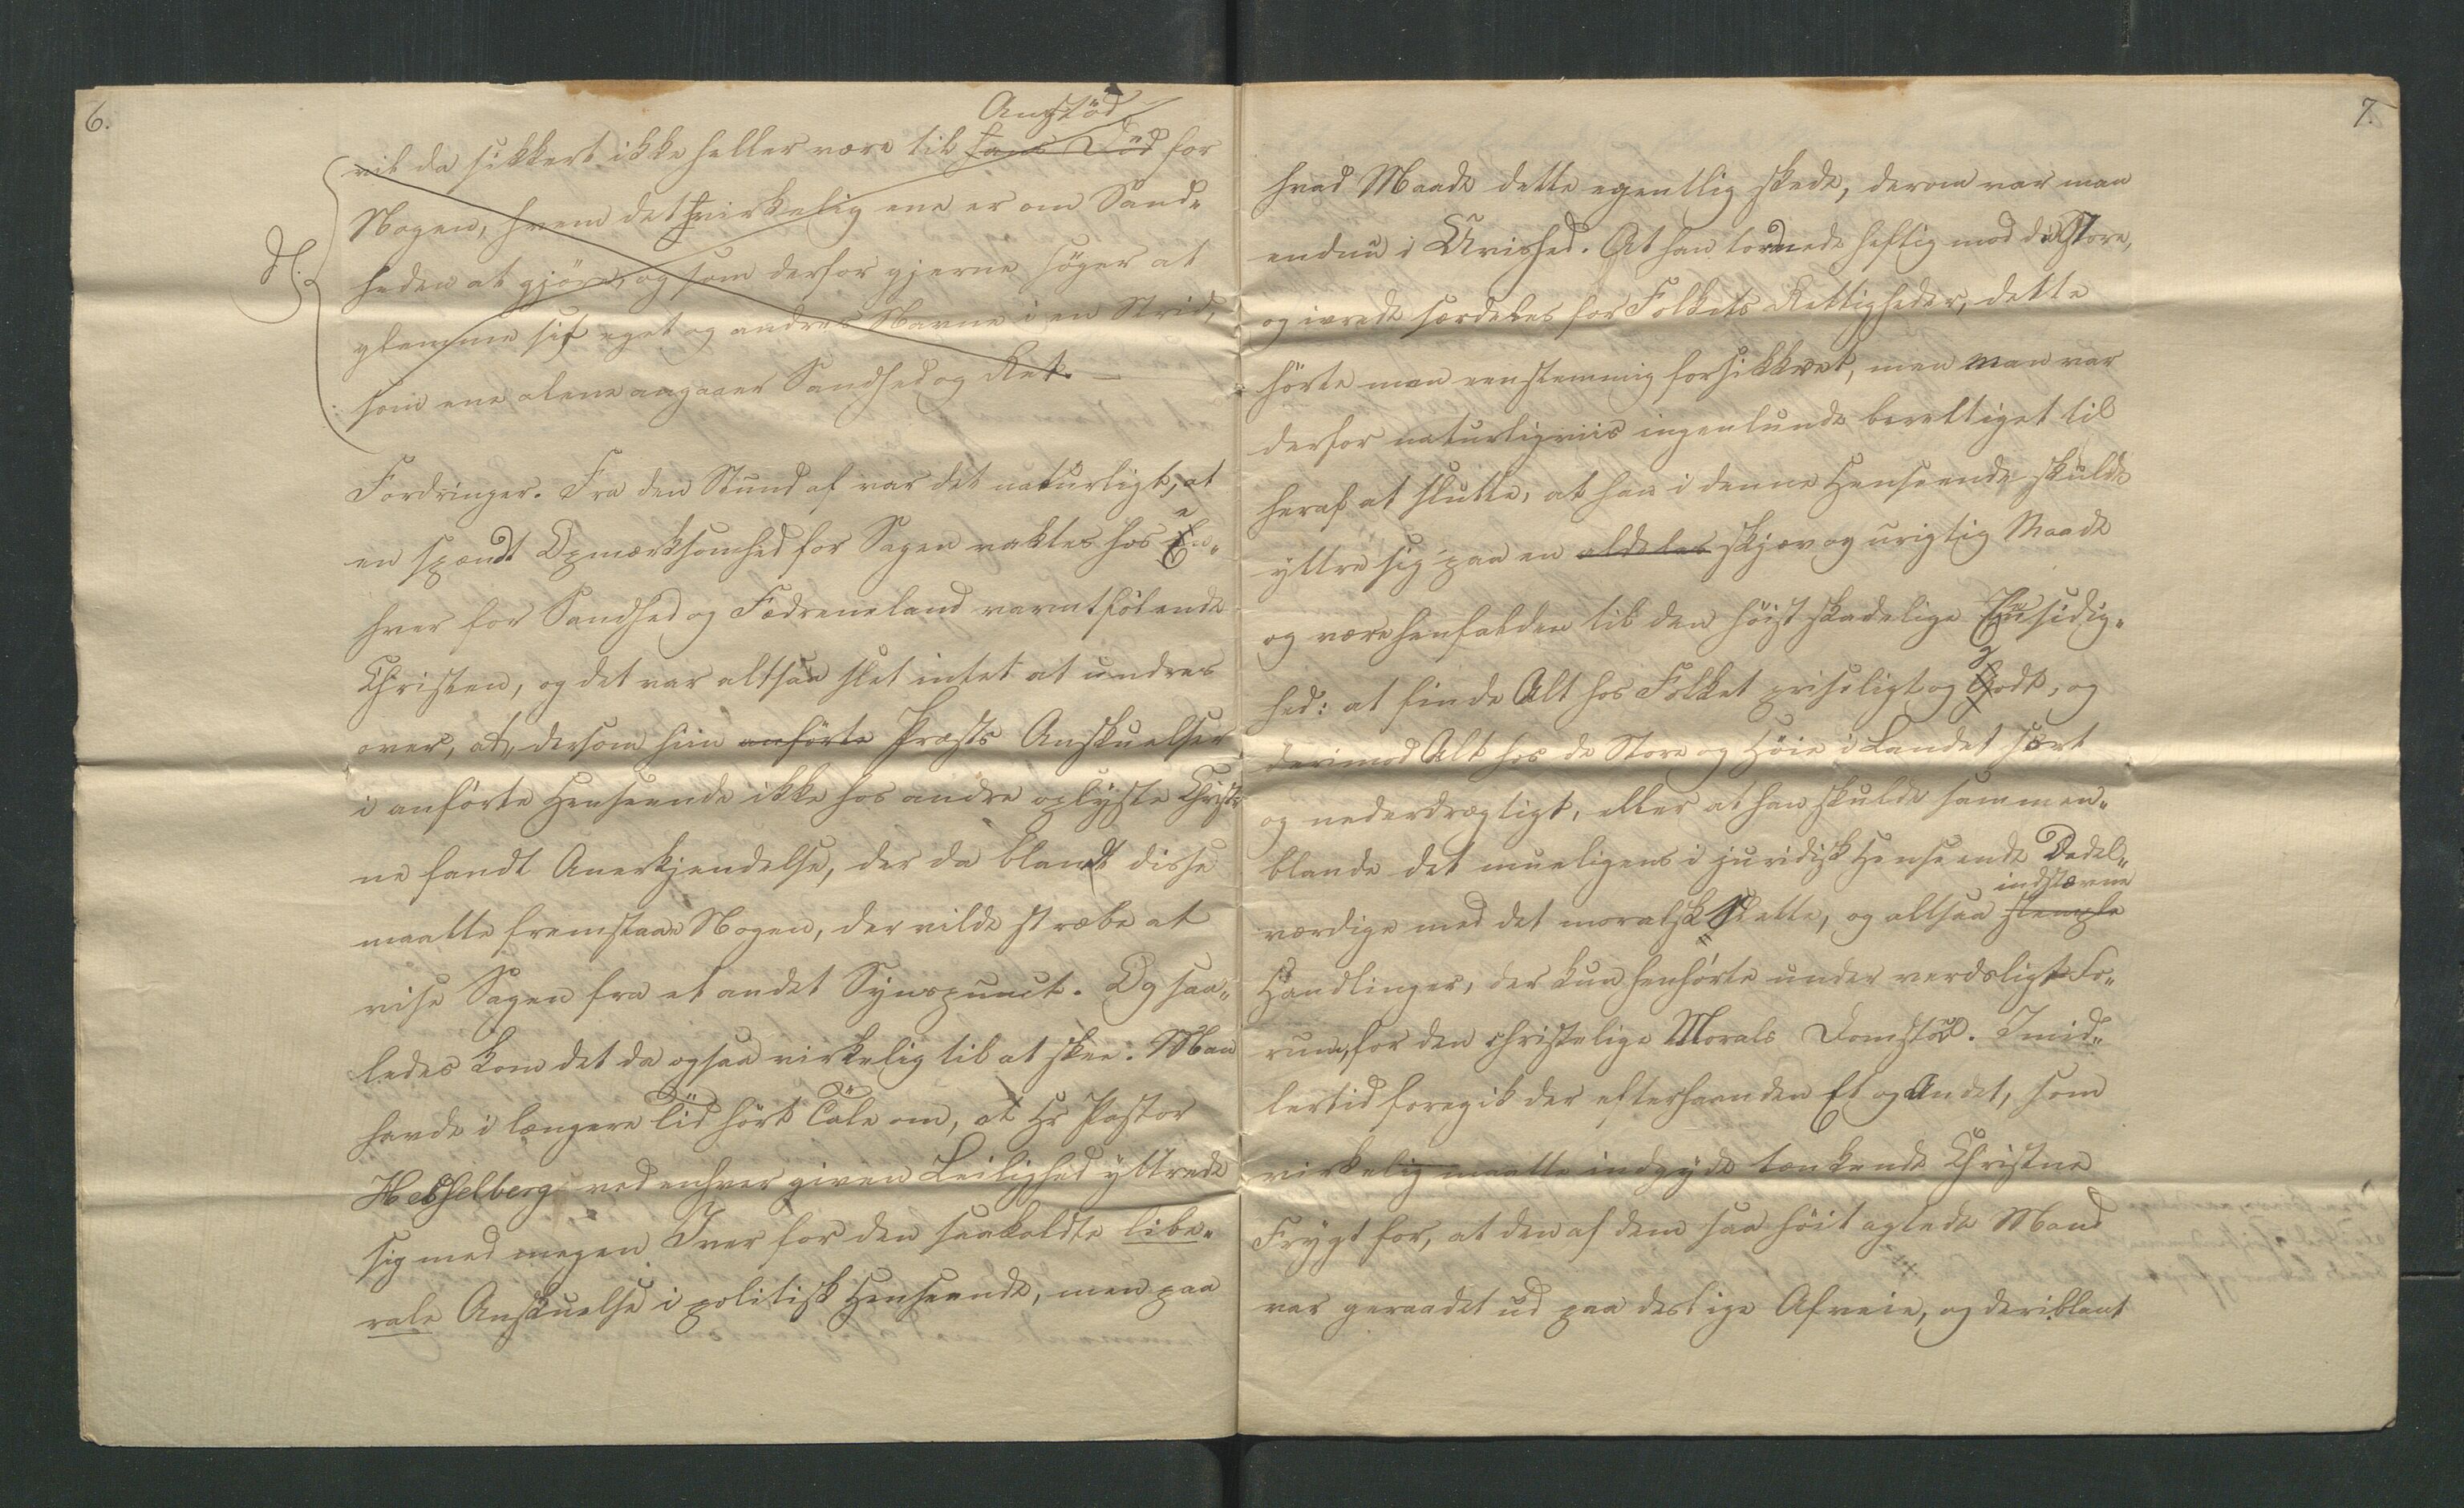 6.
Anstöd
vil da sikkert ikke heller være til hans Död for
Nogen, hvem det virkelig ene er om Sand„
heden at gjöre, og som derfor gjerne söger at
glemme sit eget og andres Navne i en Strid,
som ene alene angaaer Sandhed og Ret. —
Fordringer. Fra den Stund af var det naturligt, at
en spændt Opmærksomhed for Sagen vaktes hos en„
hver for Sandhed og Fædreneland varmtfölende
Christen, og det var altsaa slet intet at undres
over, at, dersom hiin anförte Præsts Anskuelser
i anförte Henseende ikke hos andre oplyste Christ
ne fandt Anerkjendelse, der da blandt disse
maatte fremstaae Nogen, der vilde stræbe at
vise Sagen fra et andet Synspunct. Og saa„
ledes kom det da ogsaa virkelig til at skee. Man
havde i længere Tid hört Tale om, at Hr Pastor
Hesselberg ved enhver given Leilighed yttrede
sig med megen Iver for den saakaldte libe„
rale Anskuelse i politisk Henseende, men paa
7.
hvad Maade dette egentlig skede, derom var man
endnu i Uvished. At han tordnede heftig mod de Store,
og ivrede særdeles for Folkets Rettigheder, dette
hörte man eenstemmig forsikkret, men man var
derfor naturligviis ingenlunde berettiget til
heraf at slutte, at han i denne Henseende skulde
yttre sig paa en aldeles skjæv og urigtig Maade
og være henfalden til den höist skadelige Ensidig„
hed: at finde Alt hos Folket priseligt og godt, og
derimod Alt hos de Store og Höie i Landet sort
og nederdrægtigt, eller at han skulde sammen„
blande det mueligens i juridisk Henseende Dadel„
indstævne
værdige med det moralsk Slette, og altsaa stemple
Handlinger, der kun henhörte under verdsligt Fo„
rum, for den christelige Morals Domstol. Imid„
lertid foregik der efterhaanden Et og Andet, som
virkelig maatte indgyde tænkende Christne
Frygt for, at den af dem saa höit agtede Mand
var geraadet ud paa deslige Afveie, og deriblant